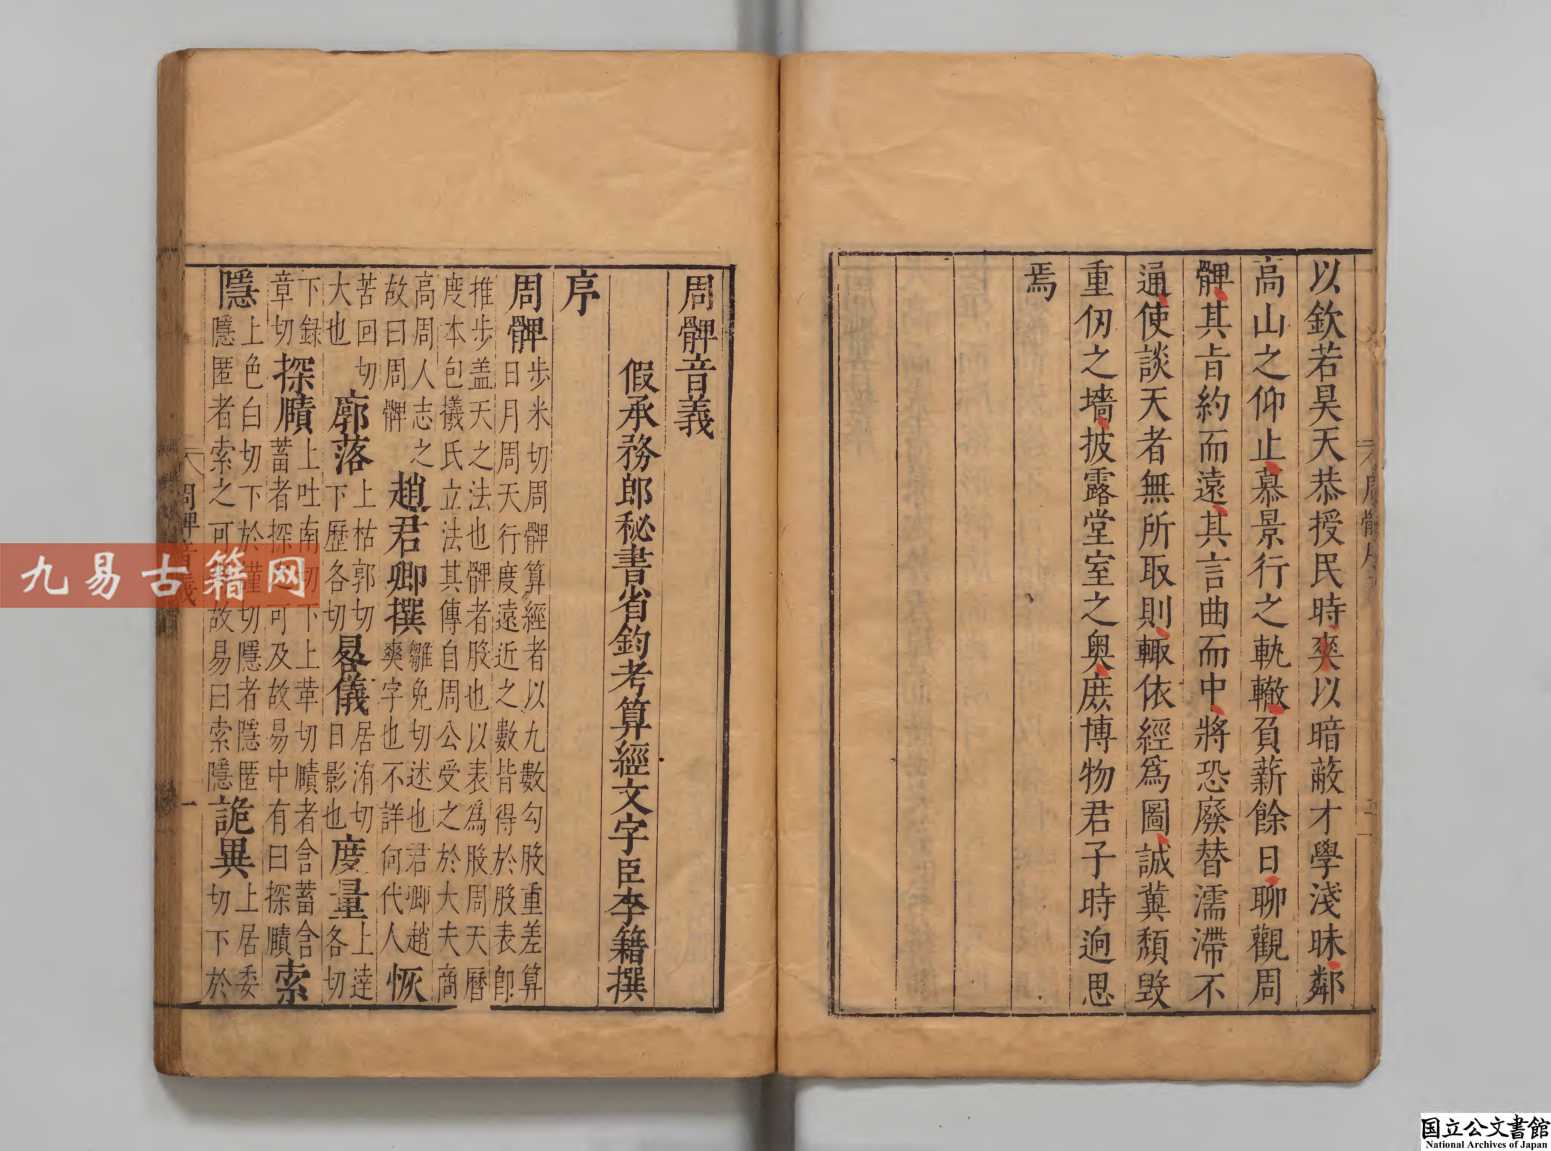 以欽若昊天恭授民時爽以暗蔽才學淺昧鄰
高山之仰止慕景行之軌轍負薪餘日聊觀周
髀其旨約而遠其言曲而中將恐廢替濡滯不
通使談天者無所取則輒依經爲圖誠冀頹毀
重仞之墻披露堂室之奥庶博物君子時逈思
焉
周髀音義
假承務郎秘書省鈞考算經文字臣李籍撰
序
周髀
步米切周髀算經者以九數勾股重差算
日月周天行度遠近之數皆得於股表即
推步盖天之法也髀者股也以表爲股周天曆
度本包犧氏立法其傳自周公受之於大夫商
高周人志之
故曰周髀
趙君卿撰
雛免切述也君卿趙
爽字也不詳何代人
恢
苦回切
大也
廓落
上枯郭切
下歷各切
晷儀
居洧切
日影也
度量
上達
各切
下錄
章切
探賾
上吐南切下上革切賾者含蓄含
蓄者探可及故易中有曰探賾
索
隱
上色白切下於謹切隱者隱匿
隱匿者索之可故易曰索隱
詭異
上居委
切下於
九易古籍网
国立公文書館
National Archives of Japan